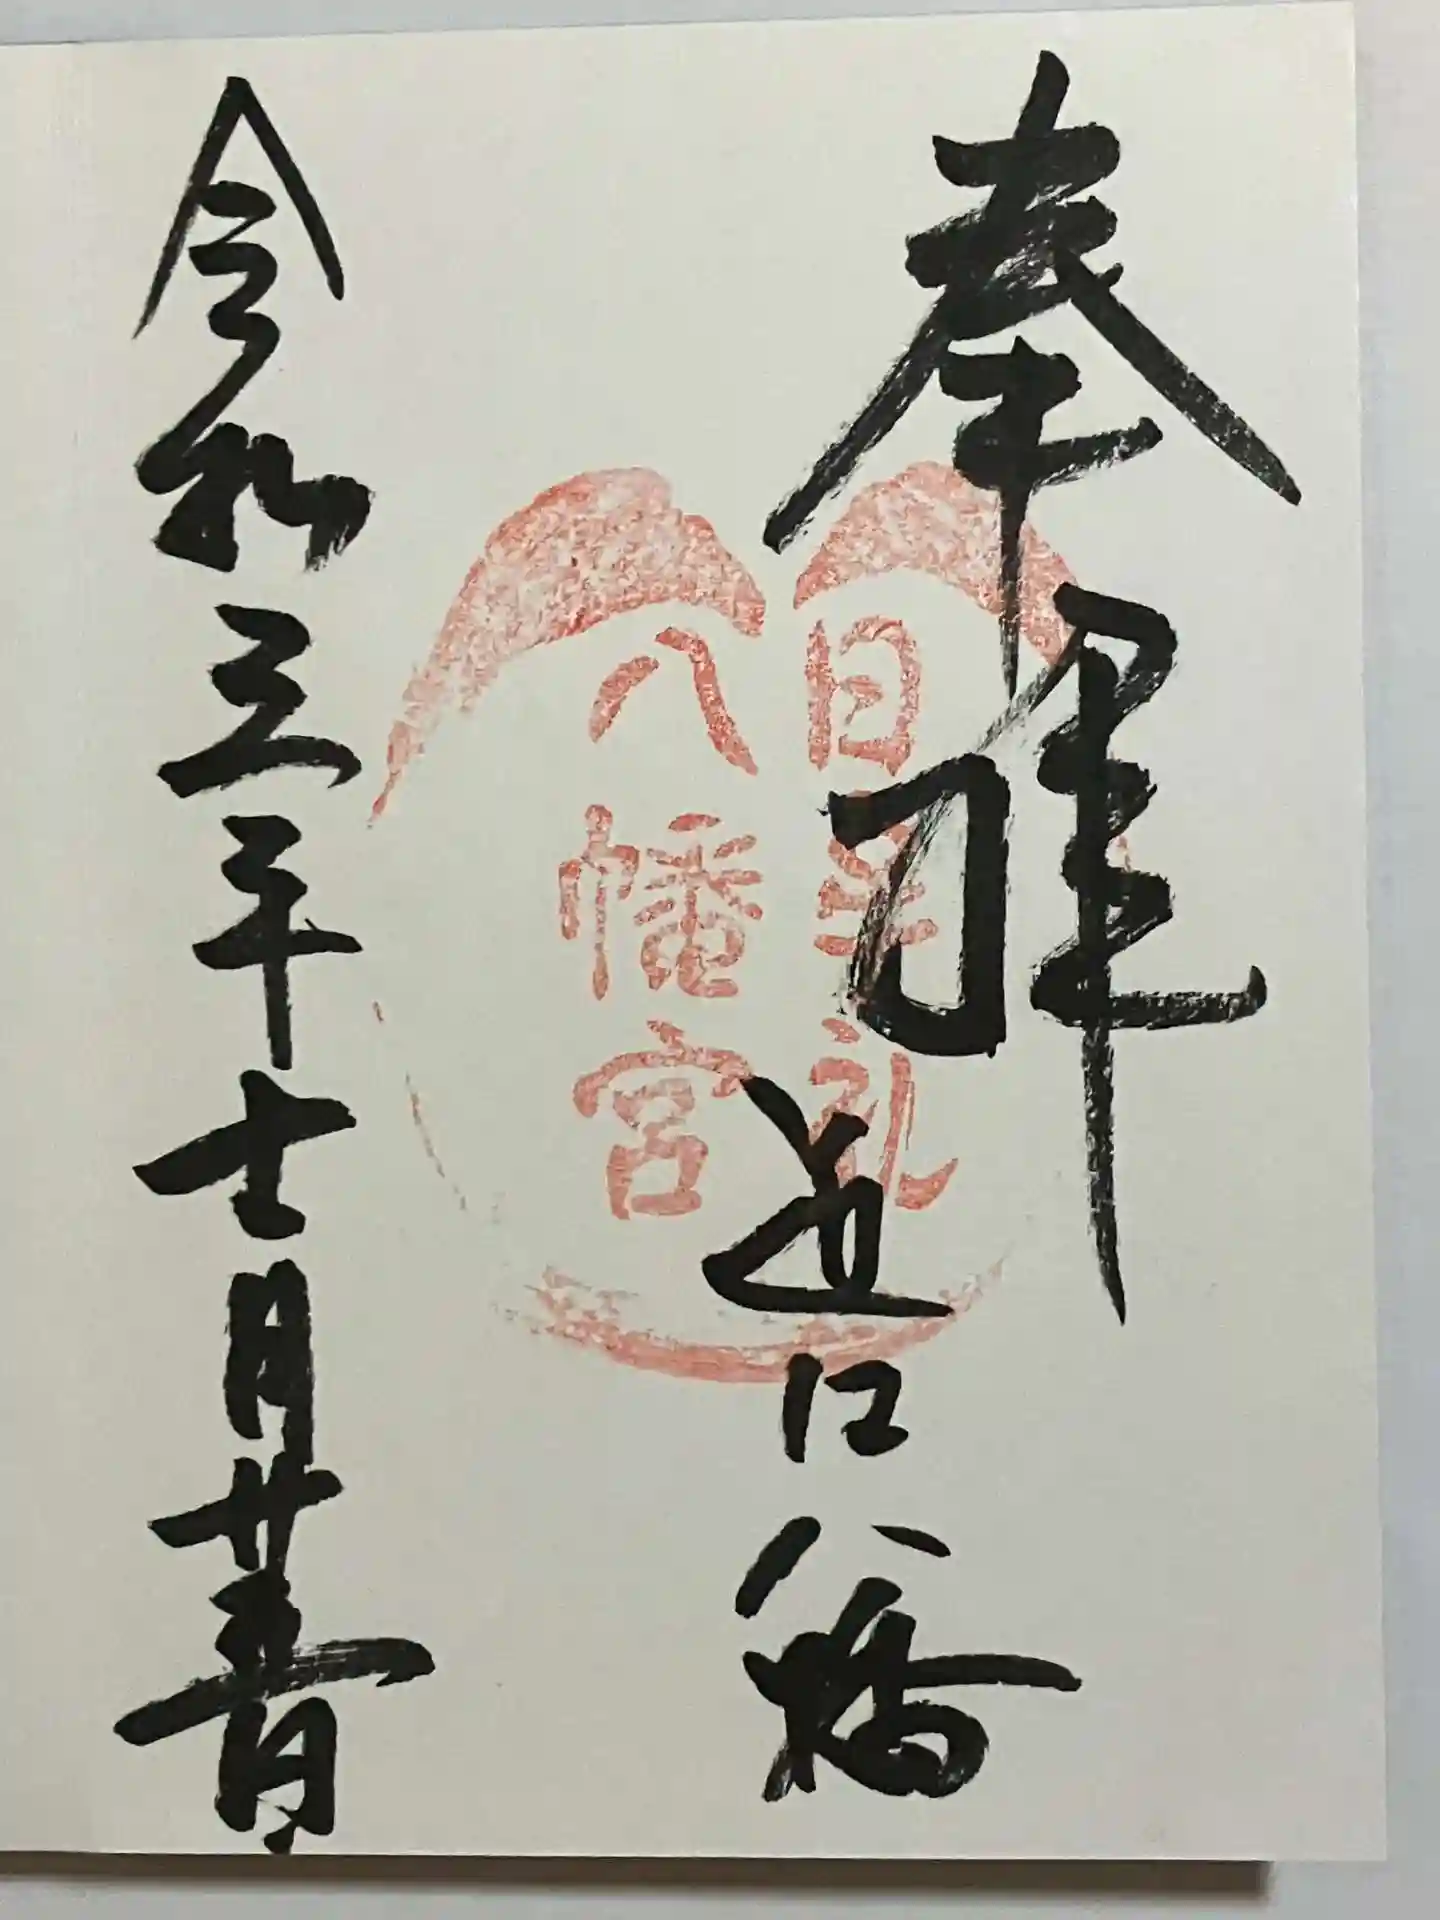 奉拝
近江八幡
日牟礼
八幡宮
令和三年十一月廿五日